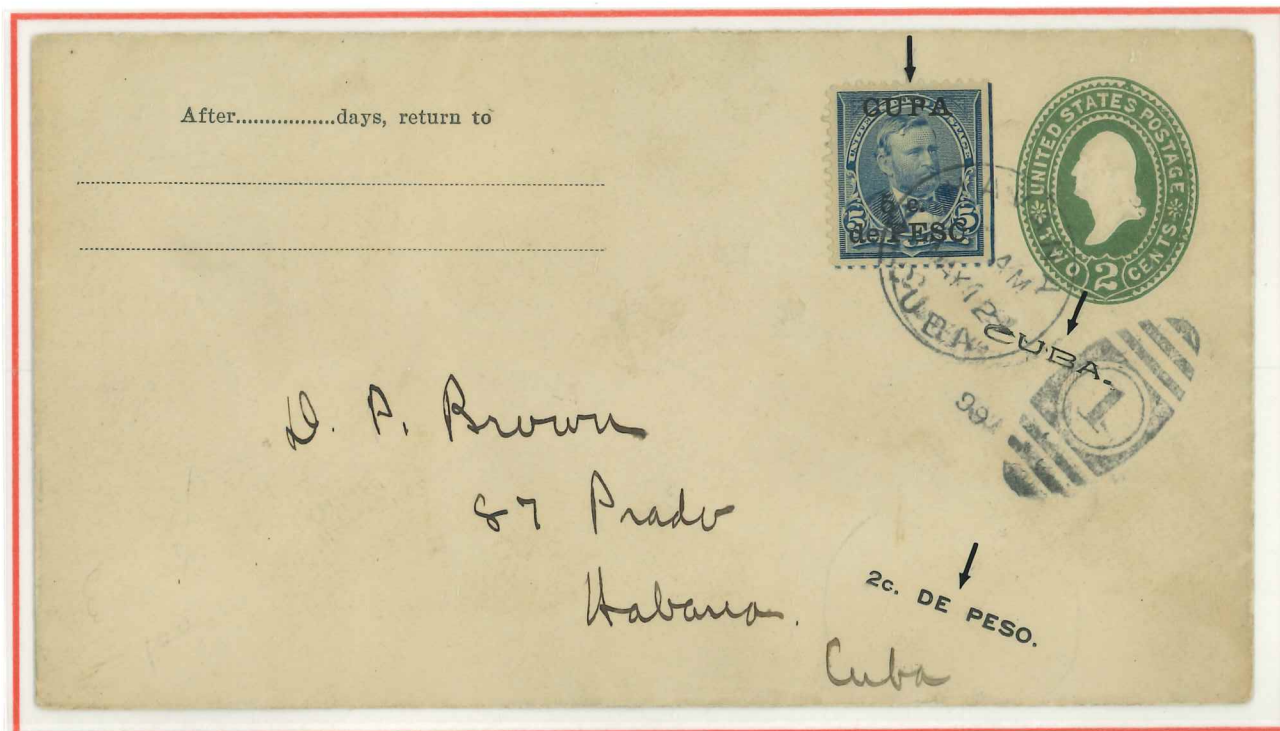 After.................days, return to
CUPA
5 5
de PESC
UNITED STATES POSTAGE
TWO 2 CENTS
AM
CUBA.
1
D. P. Brown
87 Prado
Habana.
Cuba
2c. DE PESO.